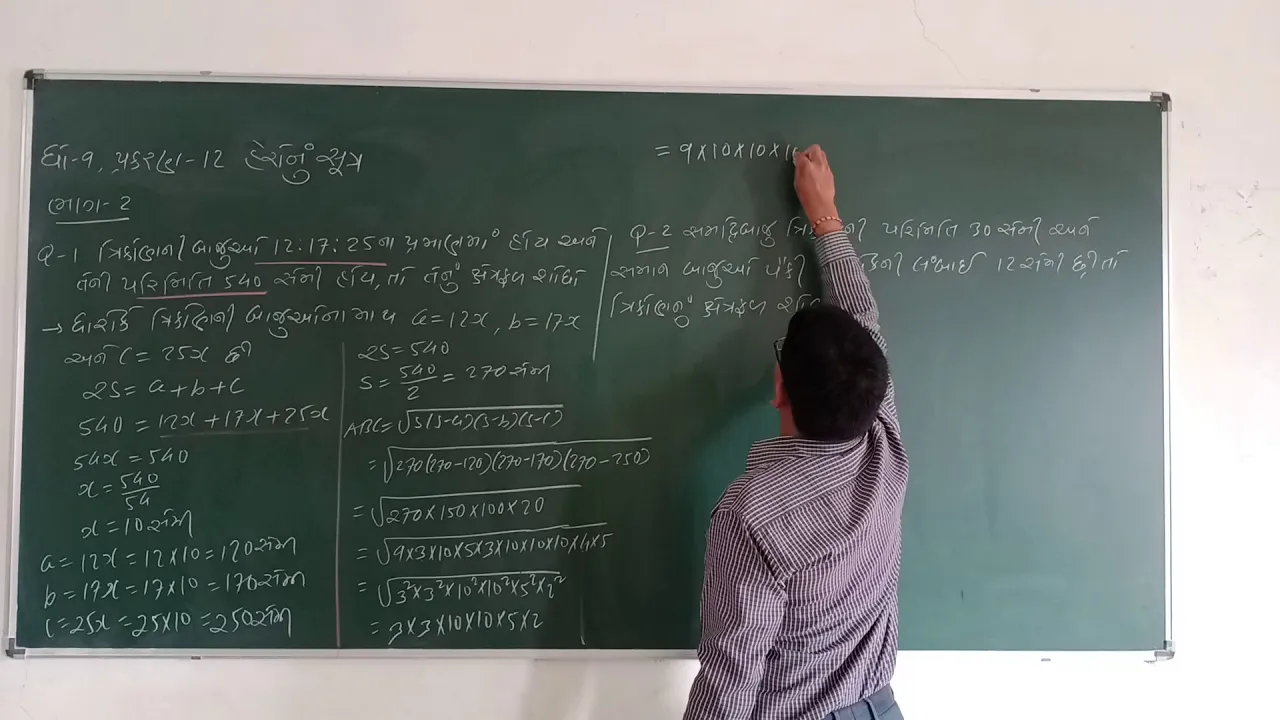 ધો-9, પ્રકરણ-12 હેરોનનું સૂત્ર
ભાગ-2
Q-1 ત્રિકોણની બાજુઓ 12:17:25ના પ્રમાણમાં હોય અને
તેની પરિમિતિ 540 સેમી હોય, તો તેનું ક્ષેત્રફળ શોધો
→ ધારોકે ત્રિકોણની બાજુઓના માપ a=12x, b=17x
અને c=25x છે
2S=a+b+c
540=12x+17x+25x
54x=540
x=540/54
x=10સેમી
a=12x=12×10=120સેમી
b=17x=17×10=170સેમી
c=25x=25×10=250સેમી
2S=540
S=540/2=270સેમી
ABC=√S(S-a)(S-b)(S-c)
=√270(270-120)(270-170)(270-250)
=√270×150×100×20
=√9×3×10×5×3×10×10×10×4×5
=√3²×3²×10²×10²×5²×2²
=3×3×10×10×5×2
=9×10×10×10
Q-2 સમદ્વિબાજુ પરિમિતિ 30સેમી અને
સમાન બાજુઓ પૈકી લંબાઈ 12સેમી છે તો
ત્રિકોણનું ક્ષેત્રફળ